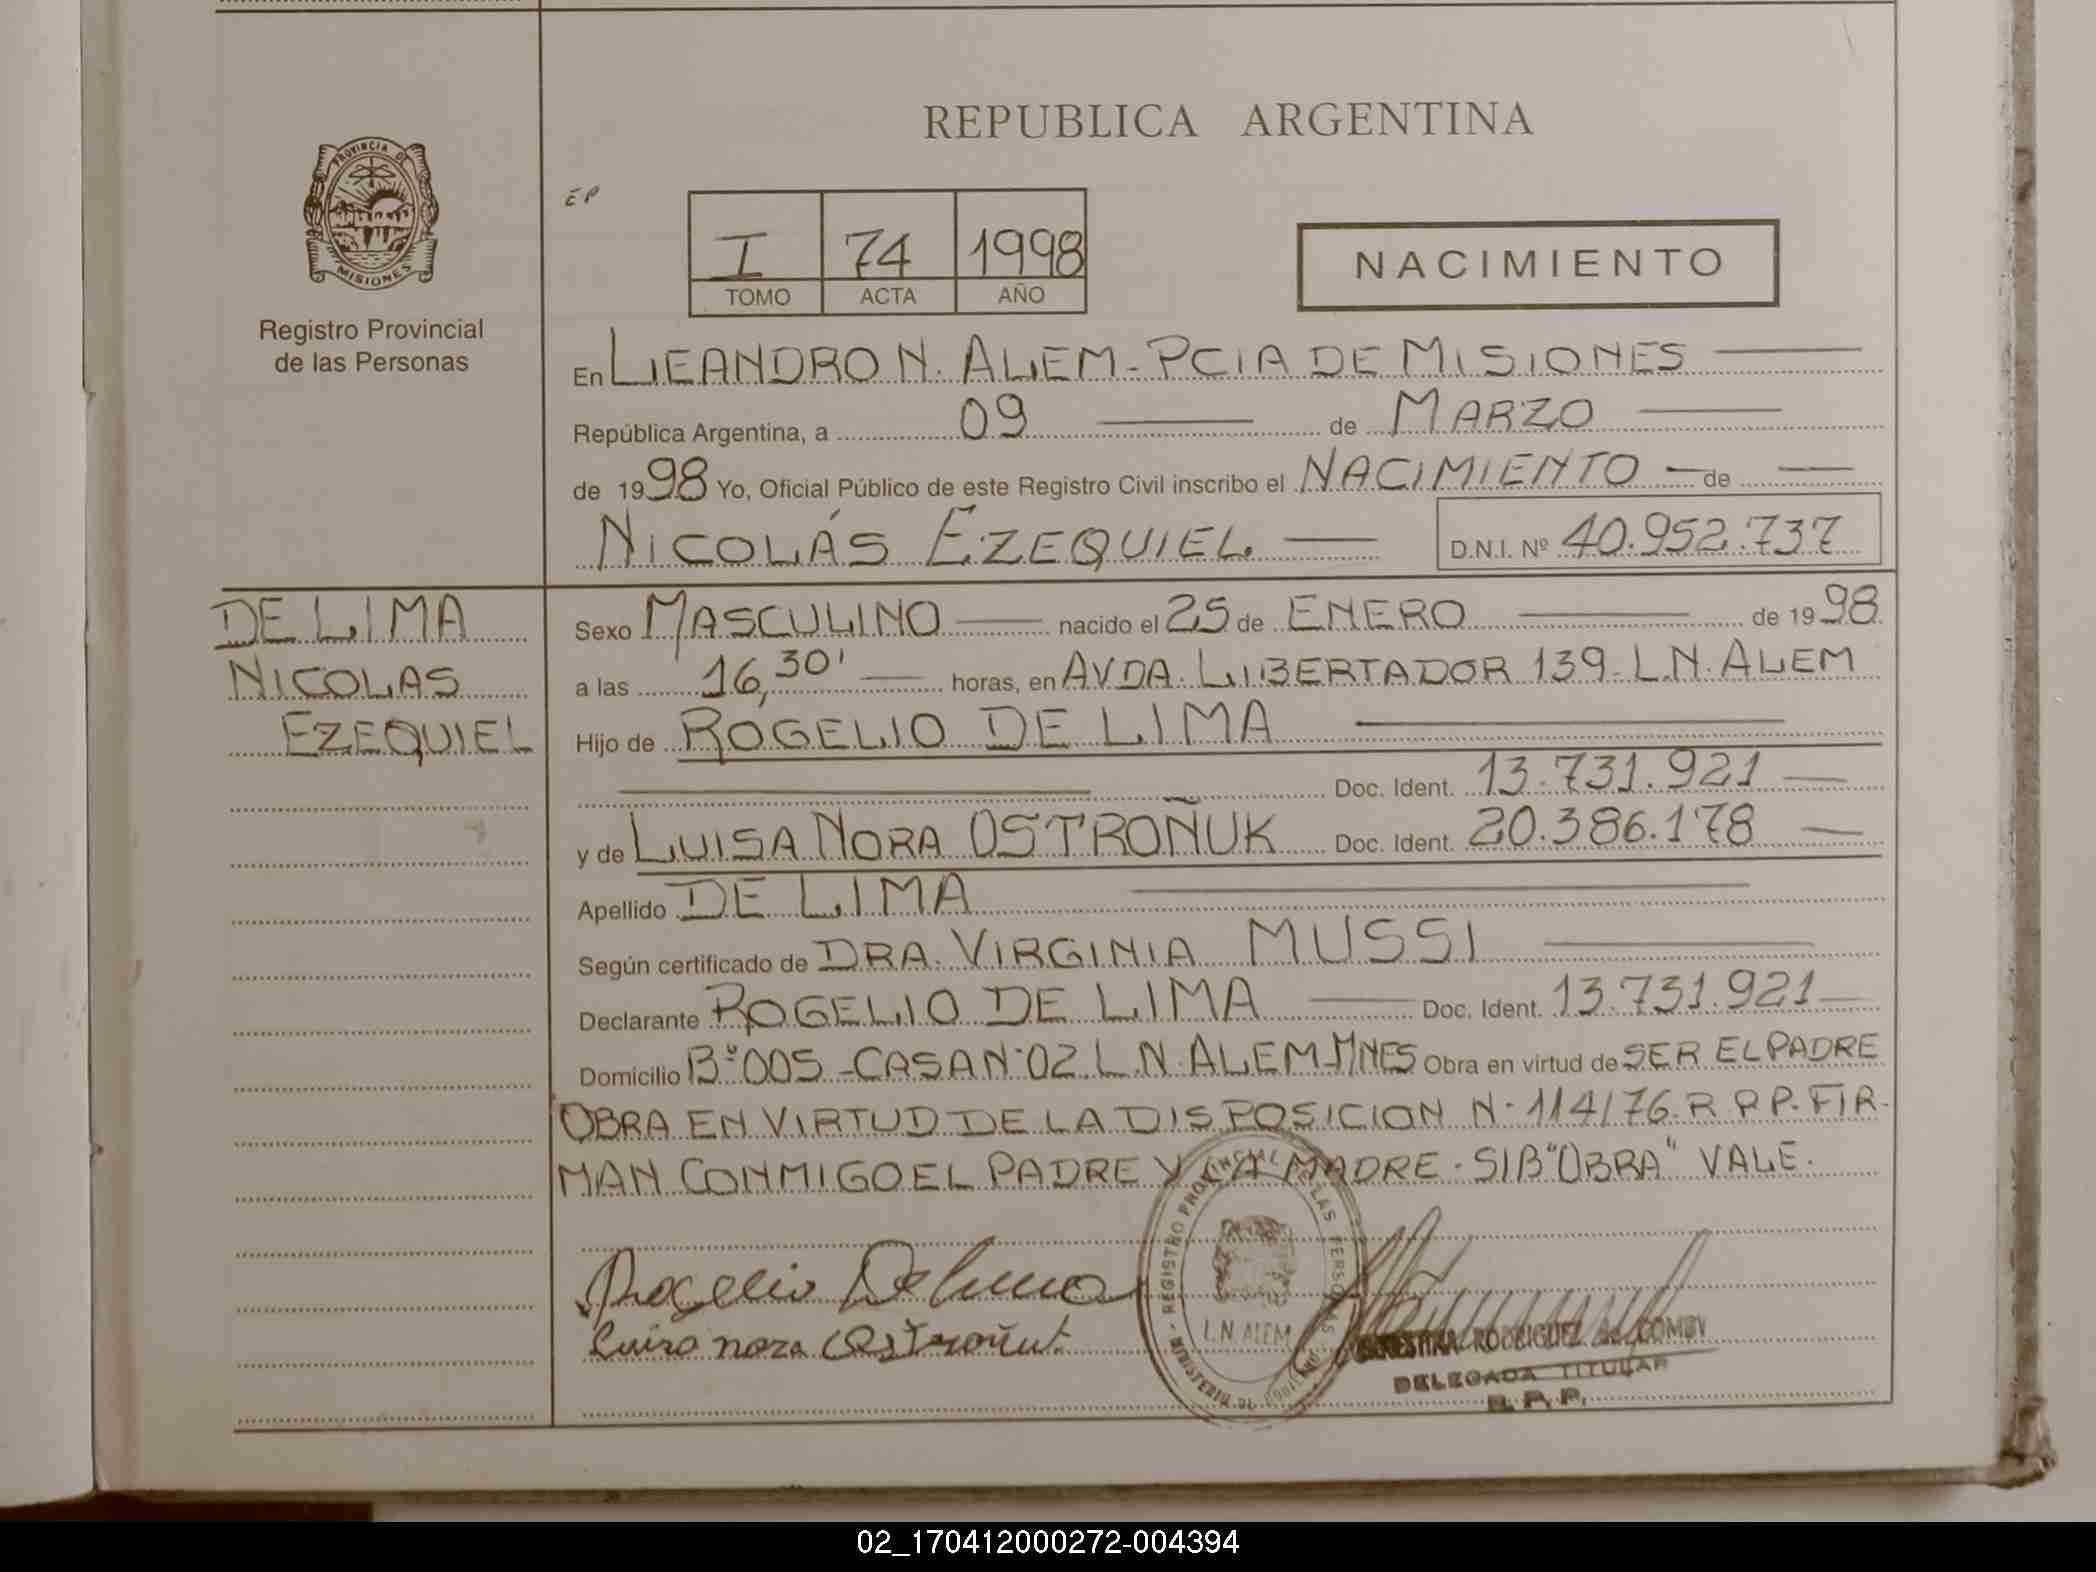 REPUBLICA ARGENTINA
PROVINCIA DE
MISIONES
Registro Provincial
de las Personas
EP
I 74 1998
TOMO ACTA AÑO
NACIMIENTO
En LEANDRO N. ALEM - PCIA DE MISIONES
República Argentina, a 09 de MARZO
de 1998 Yo, Oficial Público de este Registro Civil inscribo el NACIMIENTO de
NICOLÁS EZEQUIEL D.N.I. Nº 40.952.737
DE LIMA
NICOLAS
EZEQUIEL
Sexo MASCULINO nacido el 25 de ENERO de 1998
a las 16,30' horas, en AVDA. LIBERTADOR 139 - L.N. ALEM
Hijo de ROGELIO DE LIMA
Doc. Ident. 13.731.921
y de LUISA NORA OSTROÑUK Doc. Ident. 20.386.178
Apellido DE LIMA
Según certificado de DRA. VIRGINIA MUSSI
Declarante ROGELIO DE LIMA Doc. Ident. 13.731.921
Domicilio Bº 005 - CASA Nº 02 L.N. ALEM - MNES Obra en virtud de SER EL PADRE
OBRA EN VIRTUD DE LA DISPOSICION Nº 114/76 R.P.P. FIR-
MAN CONMIGO EL PADRE Y LA MADRE. S/B "OBRA" VALE.
Rogelio De Lima
Luisa Nora Ostroñuk
REGISTRO PROVINCIAL DE LAS PERSONAS
MINISTERIO DE
L.N. ALEM
RODRIGUEZ de
DELEGADA TITULAR
R. P. P.
02_170412000272-004394